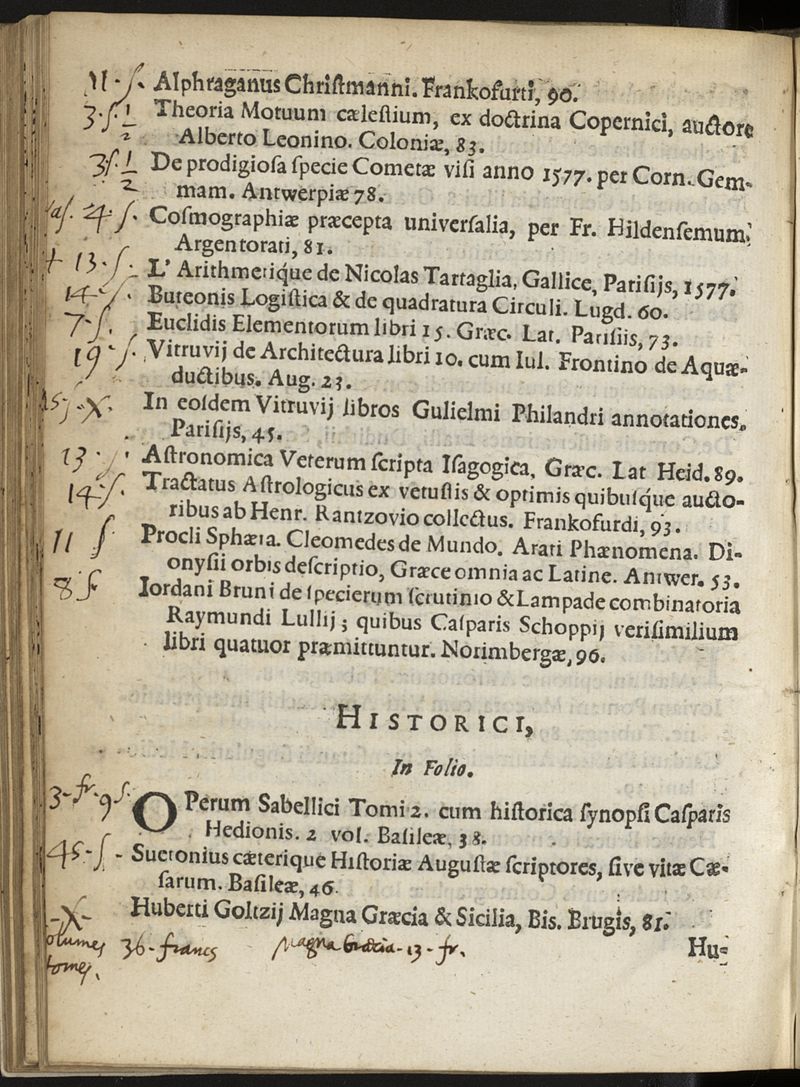 11-ſ. Alphraganus Chriſtmanni. Frankofurti, 90.
3-ſ. 1/2 Theoria Motuum cæleſtium, ex doctrina Copernici, auctore
Alberto Leonino. Coloniæ, 83.
3ſ. 1/2 De prodigioſa ſpecie Cometæ viſi anno 1577. per Corn. Gem-
mam. Antwerpiæ 78.
4-ſ. Coſmographiæ præcepta univerſalia, per Fr. Hildenſemum.
Argentorati, 81.
+ 13-ſ. L' Arithmetique de Nicolas Tartaglia, Gallice, Pariſijs, 1577.
14-ſ. Buteonis Logiſtica & de quadratura Circuli. Lugd. 60.
7-ſ. Euclidis Elementorum libri 15. Græc. Lat. Pariſiis, 73.
19-ſ. Vitruvij de Architectura libri 10. cum Iul. Frontino de Aquæ-
ductibus. Aug. 23.
-X- In eoſdem Vitruvij libros Gulielmi Philandri annotationes.
Pariſijs, 45.
13-ſ. Aſtronomica Veterum ſcripta Iſagogica, Græc. Lat Heid. 89.
14-ſ. Tractatus Aſtrologicus ex vetuſtis & optimis quibuſque aucto-
ribus ab Henr. Rantzovio collectus. Frankofurdi, 93.
11 ſ Procli Sphæra. Cleomedes de Mundo. Arati Phænomena. Di-
onyſii orbis deſcriptio, Græce omnia ac Latine. Antwer. 53.
8-ſ Iordani Bruni de ſpecierum ſcrutinio & Lampade combinatoria
Raymundi Lullij; quibus Caſparis Schoppij veriſimilium
libri quatuor præmittuntur. Norimbergæ, 96.
HISTORICI,
In Folio.
3-fr-9ſ. OPerum Sabellici Tomi 2. cum hiſtorica ſynopſi Caſparis
Hedionis. 2 vol. Baſileæ, 38.
45-ſ- Suetonius cæterique Hiſtoriæ Auguſtæ ſcriptores, ſive vitæ Cæ-
ſarum. Baſileæ, 46.
-X- Huberti Goltzij Magna Græcia & Sicilia, Bis. Brugis, 81.
36-francs Magna Græcia-13-fr. Hu-
tomes.